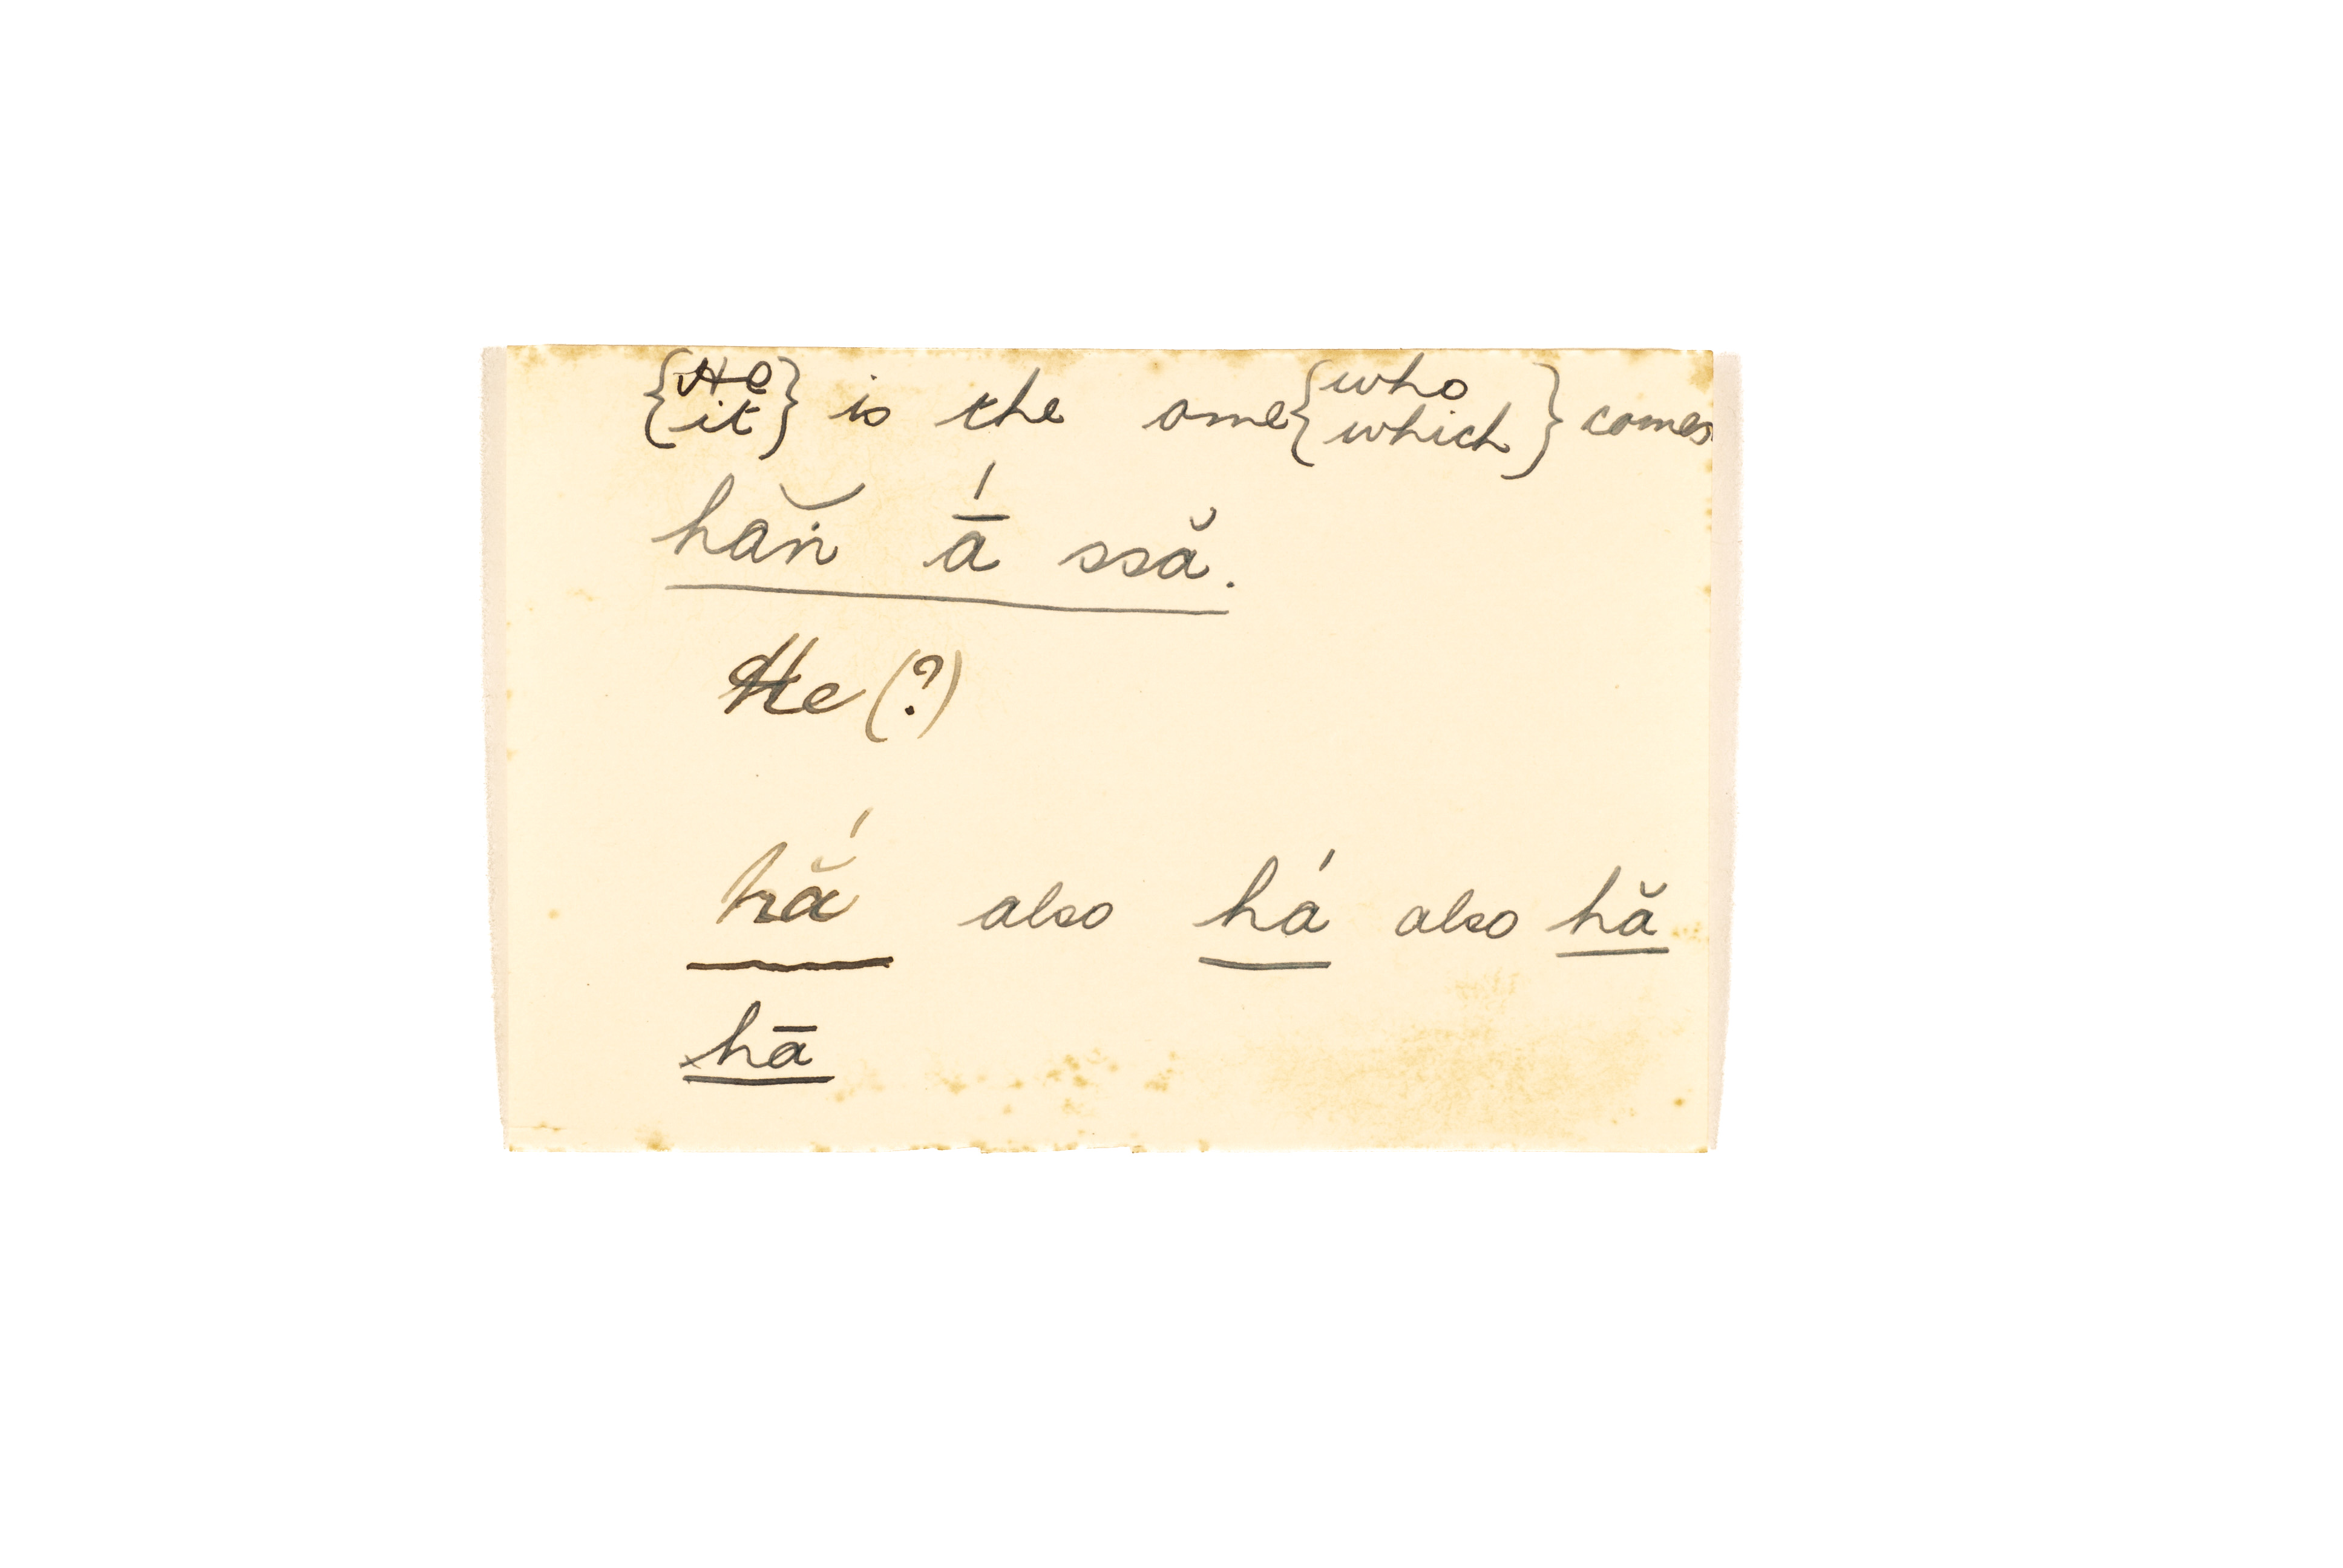 {He / it} is the one {who / which} comes
hăṅ ā́ ssă.
He (?)
hắ also há also hă
hā